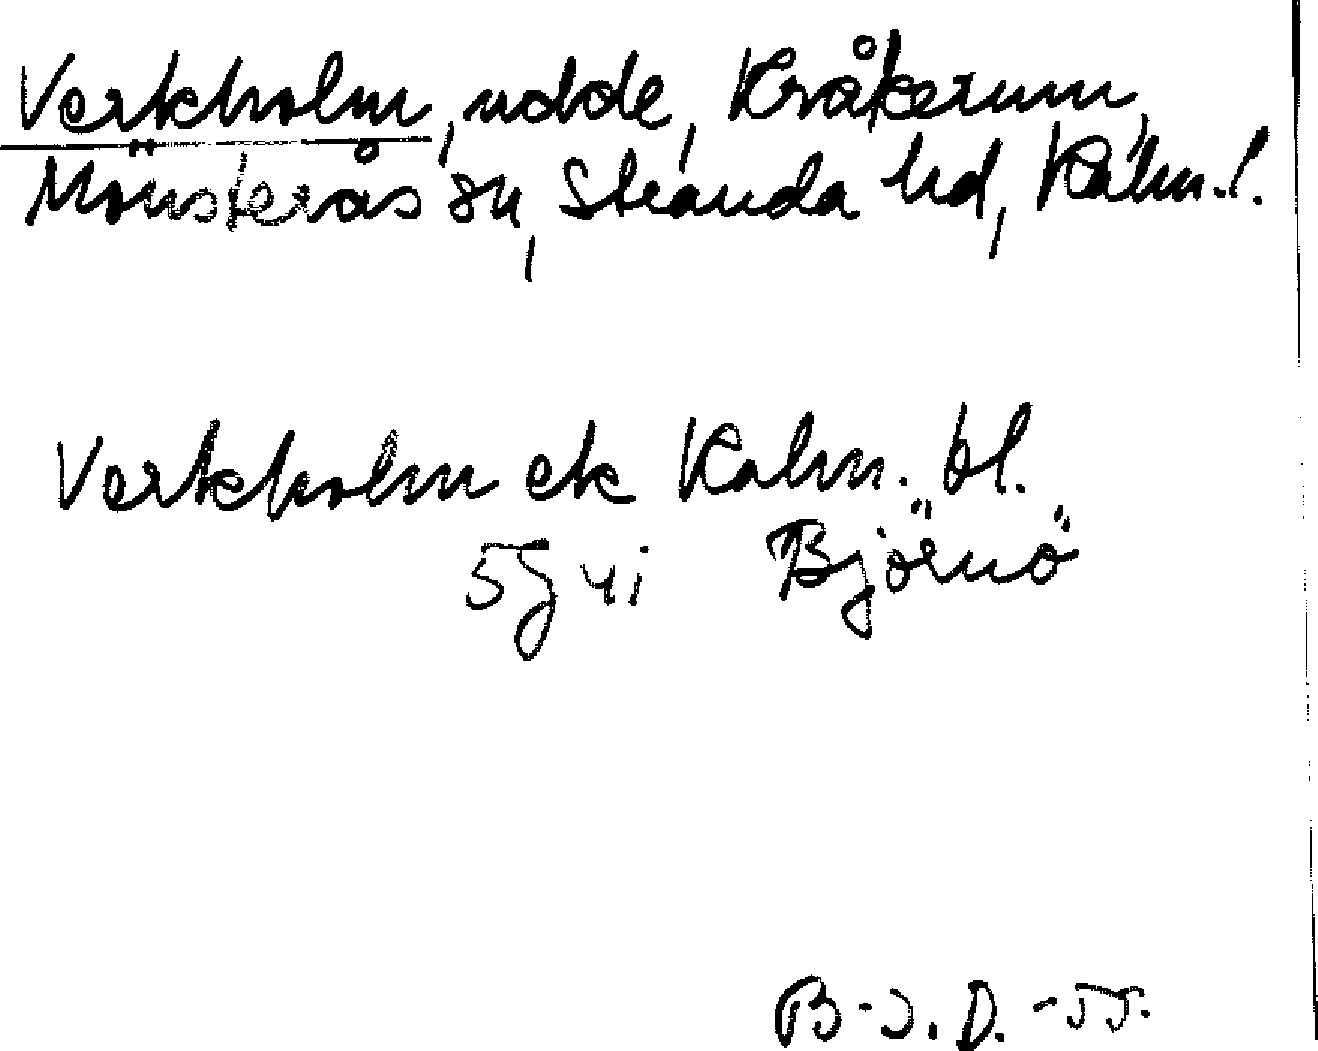 Verkholm, udde, Kråkerum,
Mönsterås sn, Stranda hd, Kalm. l.
Verkholm ek Kalm. bl.
5g4i Björnö
B-J. D. -55.